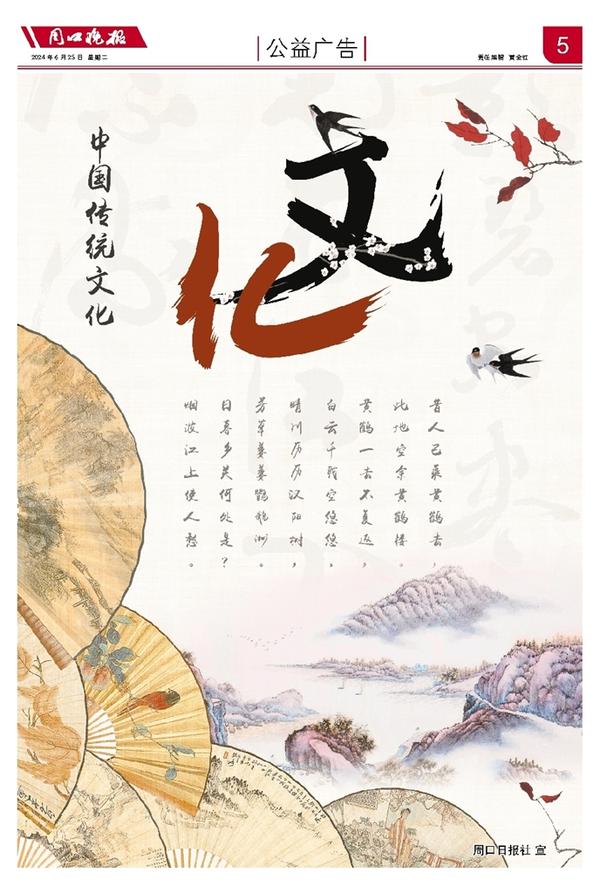 周口晚报
2024年6月25日 星期二
公益广告
责任编辑
5
中国传统文化
文化
昔人已乘黄鹤去,
此地空余黄鹤楼。
黄鹤一去不复返,
白云千载空悠悠。
晴川历历汉阳树,
芳草萋萋鹦鹉洲。
日暮乡关何处是?
烟波江上使人愁。
周口日报社 宣